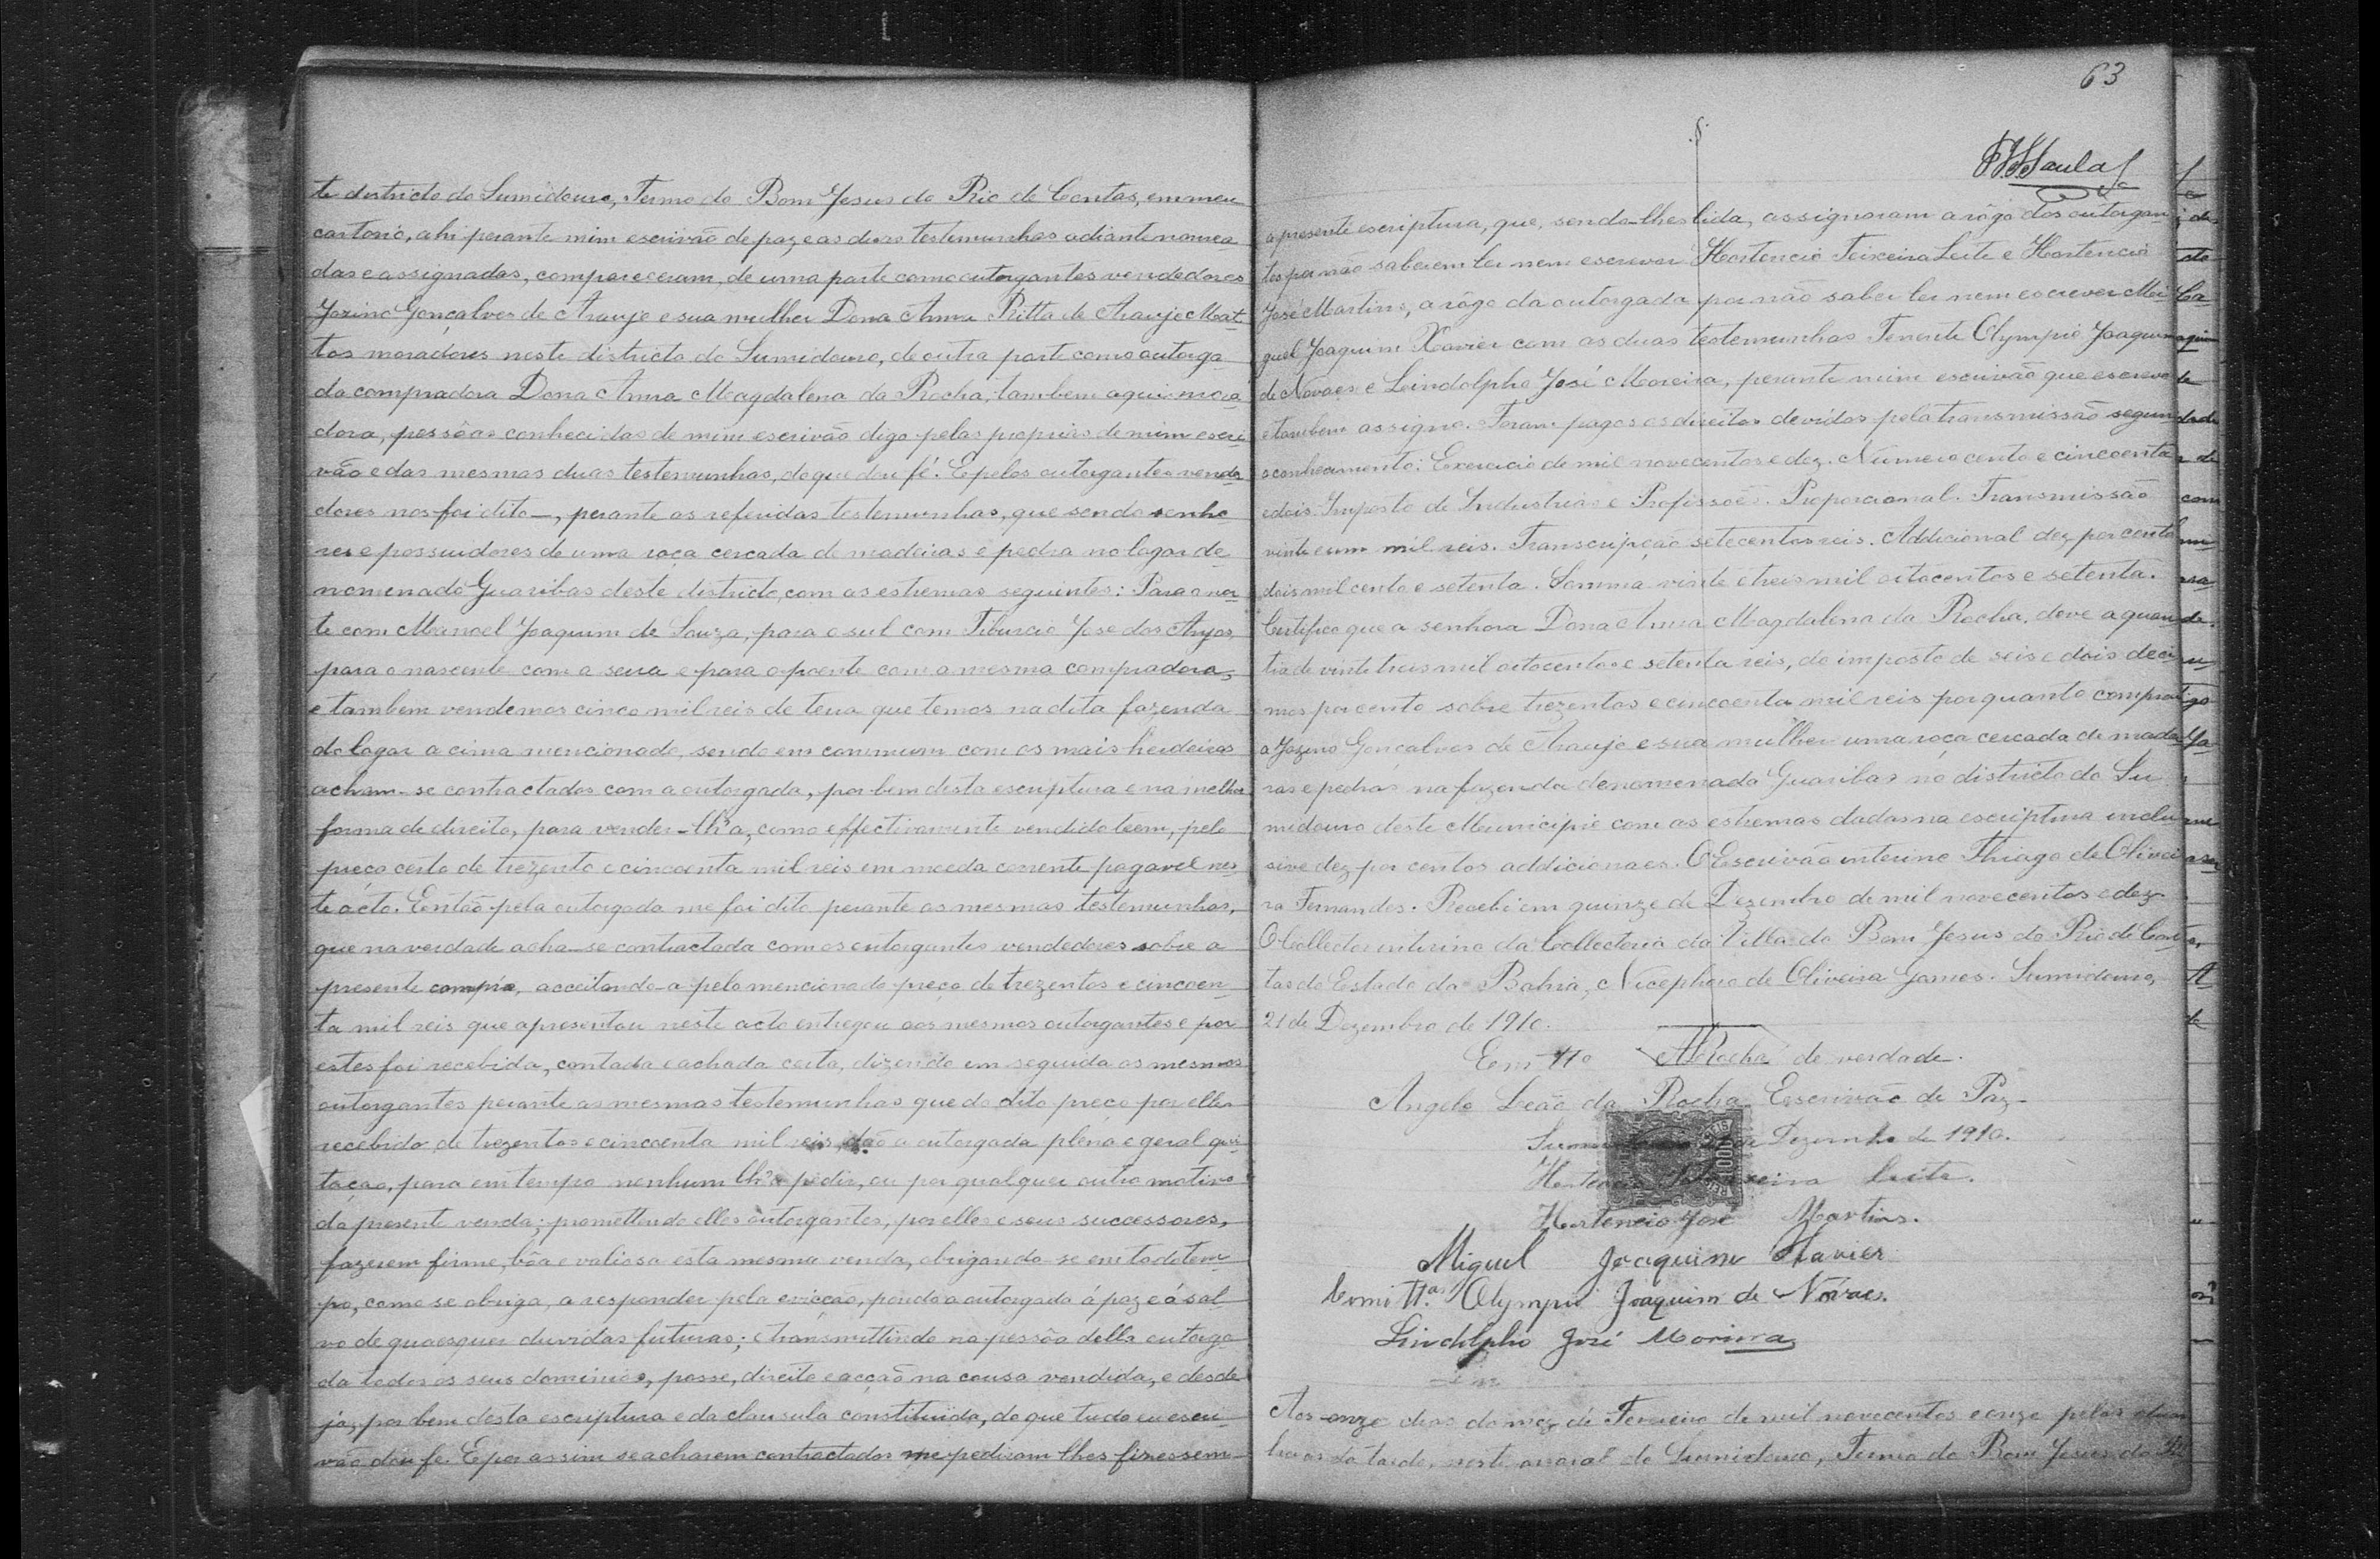 te districto do Sumidouro, Termo do Bom Jesus do Rio de Contas, em meu
cartorio, ahi perante mim escrivão de paz e as duas testemunhas adiante nomea
das e assignadas, compareceram, de uma parte como outorgantes vendedores
Jozino Gonçalves de Araujo e sua mulher Dona Anna Ritta de Araujo Mat
tos moradores neste districto do Sumidouro, de outra parte como outorga
da compradora Dona Anna Magdalena da Rocha, tambem aqui mora
dora, pessôas conhecidas de mim escrivão digo pelas proprias de mim escri
vão e das mesmas duas testemunhas, do que dou fé. E pelos outorgantes vende
dores nos foi dito—, perante as referidas testemunhas, que sendo senho
res e possuidores de uma roça cercada de madeiras e pedra no logar de
nomenado Guaribas deste districto, com as estremas seguintes: Para o nor
te com Manoel Joaquim de Souza, para o sul com Tiburcio Jose dos Anjos,
para o nascente com a serra e para o poente com a mesma compradora,
e tambem vendemos cinco mil reis de terra que temos na dita fazenda
do logar a cima mencionado, sendo em commum com os mais herdeiros
acham-se contractados com a outorgada, por bem desta escriptura e na melhor
forma de direito, para vender-lh'a, como effectivamente vendido teem, pelo
preço certo de trezento e cincoenta mil reis em moeda corrente pagavel nes
te acto. Então pela outorgada me foi dito perante as mesmas testemunhas,
que na verdade acha-se contractada com os outorgantes vendedores sobre a
presente compra, acceitando-a pelo mencionado preço de trezentos e cincoen
ta mil reis que apresentou neste acto entregou aos mesmos outorgantes e por
estes foi recebida, contada e achada certa, dizendo em seguida os mesmos
outorgantes perante as mesmas testemunhas que do dito preço por elles
recebido de trezentos e cincoenta mil reis, dão a outorgada plena e geral qui
tação, para em tempo nenhum lh'o pedir, ou por qualquer outro motivo
da presente venda; promettendo elles outorgantes, por elles e seus successores,
fazerem firme, bôa e valiosa esta mesma venda, obrigando se em todo tem
po, como se obriga, a responder pela evicção, pondo a outorgada á paz e á sal
vo de quaesquer duvidas futuras; transmittindo na pessôa della outorga
da todos os seus dominios, posse, direito e acção na cousa vendida, e desde
já, por bem desta escriptura e da clausula constituida, do que tudo eu escri
vão dou fe. E por assim se acharem contractados me pediram lhes fizessem
63
a presente escriptura, que, sendo-lhes lida, assignaram a rôgo dos outorgan
tes por não saberem ler nem escrever Hortencio Teixeira Leite e Hortencio
José Martins, a rôgo da outorgada por não saber ler nem escrever Mi
guel Joaquim Xavier com as duas testemunhas Tenente Olympio Joaquim
de Novaes e Lindolpho José Moreira, perante mim escrivão que escrevo
e tambem assigno. Foram pagos os direitos devidos pela transmissão segun
o conhecimento: Exercicio de mil novecentos e dez. Número cento e cincoenta
e dois. Imposto de Industrias e Profissoẽs. Proporcional. Transmissão
vinte e um mil reis. Transcripção setecentos reis. Addicional dez por cento
dois mil cento e setenta. Somma vinte e treis mil oitocentos e setenta.
Certifico que a senhora Dona Anna Magdalena da Rocha, deve a quan
tia de vinte treis mil oitocentos e setenta reis, do imposto de seis e dois deci
mos por cento sobre trezentos e cincoenta mil reis por quanto comprou
a Jozino Gonçalves de Araujo e sua mulher uma roça cercada de madei
ras e pedras na fazenda denomenada Guaribas no districto do Su
midouro deste Municipio com as estremas dadas na escriptura inclu
sive dez por centos addicionaes. O Escrivão interino Thiago de Olivei
ra Fernandes. Recebi em quinze de Dezembro de mil novecentos e dez
O Collector interino da Collectoria da Villa do Bom Jesus do Rio de Con
tas do Estado da Bahia, Nicephoro de Oliveira Gomes. Sumidouro,
21 de Dezembro de 1910.
Em tto ARocha de verdade.
Angelo Leão da Rocha Escrivão de Paz
Dezembro de 1910.
Hortencio Teixeira Leite.
Hortencio José Martins.
Miguel Joaquim Xavier
Como ttas Olympio Joaquim de Nováes.
Lindolpho José Moreira
Aos onze dias do mez de Fevereiro de mil novecentos e onze pelas
horas da tarde, neste arraial do Sumidouro, Termo do Bom Jesus do Ri